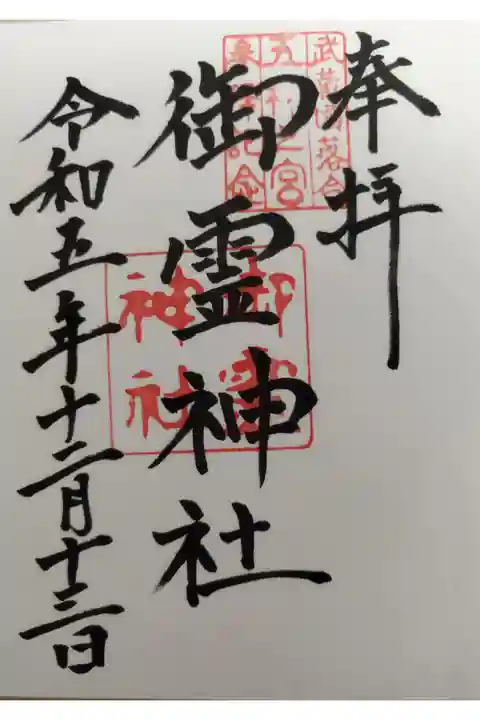 奉拝
武蔵國落合
御霊神社
御霊
神社
令和五年十二月十三日